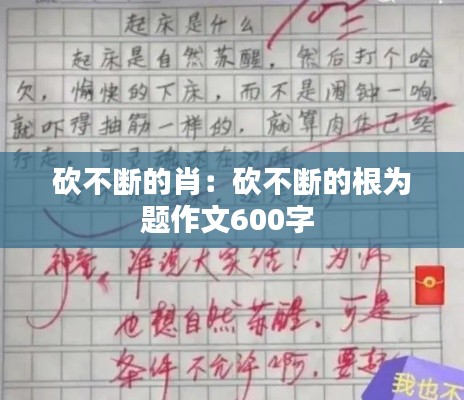 起床是什么
起床是自然苏醒，然后打个哈
欠，愉快的下床，而不是闹钟一响，
就吓得抽筋一样的，就算肉体已经
行走，可灵魂还在
砍不断的肖：砍不断的根为
题作文600字
神童，准说大实话！为师
也想自然苏醒，可是
条件不允许啊，要起
我也不